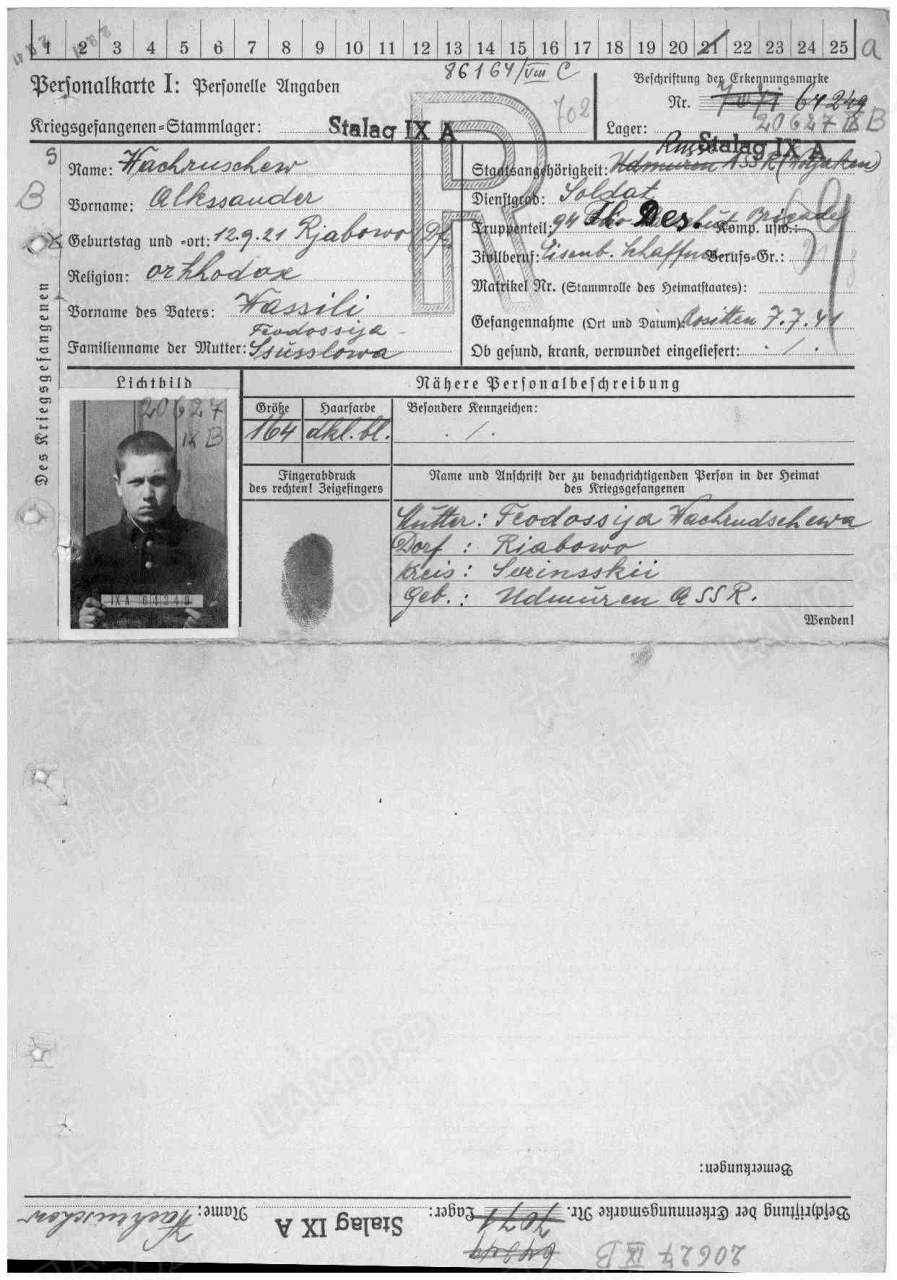 1 2 3 4 5 6 7 8 9 10 11 12 13 14 15 16 17 18 19 20 21 22 23 24 25 a
86164/VIII C
Personalkarte I: Personelle Angaben
Beschriftung der Erkennungsmarke
702
Nr. 7071 64249
Kriegsgefangenen-Stammlager: Stalag IX A
20627 IX B
Lager: Stalag IX A
R
S
B
Des Kriegsgefangenen
Name: Wachruschew
Vorname: Alkssander
Geburtstag und -ort: 12.9.21 Rjabowo (Df.
Religion: orthodox
Vorname des Vaters: Wassili
Feodossija
Familienname der Mutter: Ssusslowa
Staatsangehörigkeit: Udmuren ASSR (Wotjaken)
Dienstgrad: Soldat
Truppenteil: 94 Des. Brigade Komp. usw.:
Zivilberuf: Eisenb. Schaffner Berufs-Gr.:
Matrikel Nr. (Stammrolle des Heimatstaates):
Gefangennahme (Ort und Datum): Rositten 7.7.41
Ob gesund, krank, verwundet eingeliefert: ./.
Lichtbild
20627
IX B
IX A 64249
Nähere Personalbeschreibung
Größe Haarfarbe Besondere Kennzeichen:
164 dkl.bl. ./.
Fingerabdruck
des rechten! Zeigefingers
Name und Anschrift der zu benachrichtigenden Person in der Heimat
des Kriegsgefangenen
Mutter: Feodossija Wachrudschewa
Dorf : Rjabowo
Kreis : Surinsskii
Geb. : Udmuren ASSR.
Wenden!
Bemerkungen:
Beschriftung der Erkennungsmarke Nr. 7071 Lager: Stalag IX A Name: Wachruschew
64249
20627 IX B
ПАМЯТЬ НАРОДА
ЦАМО РФ